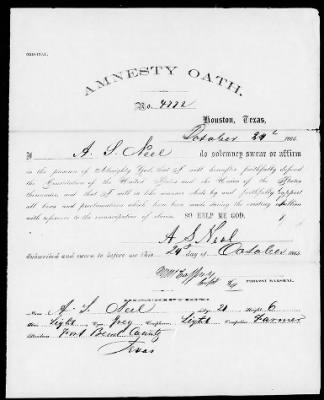 ORIGINAL.
AMNESTY OATH.
No. 4772
Houston, Texas,
October 24th 1865
I A. S. Neel do solemnly swear or affirm
in the presence of Almighty God, that I will hereafter faithfully defend
the Constitution of the United States and the Union of the States
thereunder, and that I will in like manner abide by and faithfully support
all laws and proclamations which have been made during the existing rebellion
with reference to the emancipation of slaves. SO HELP ME GOD.
A S Neal
Subscribed and sworn to before me this 24th day of October 1865
PROVOST MARSHAL.
Name A. S. Neel Age 21 Height 6
Hair Light Eyes Grey Complexion Light Occupation Farmer
Residence Fort Bend County
Texas